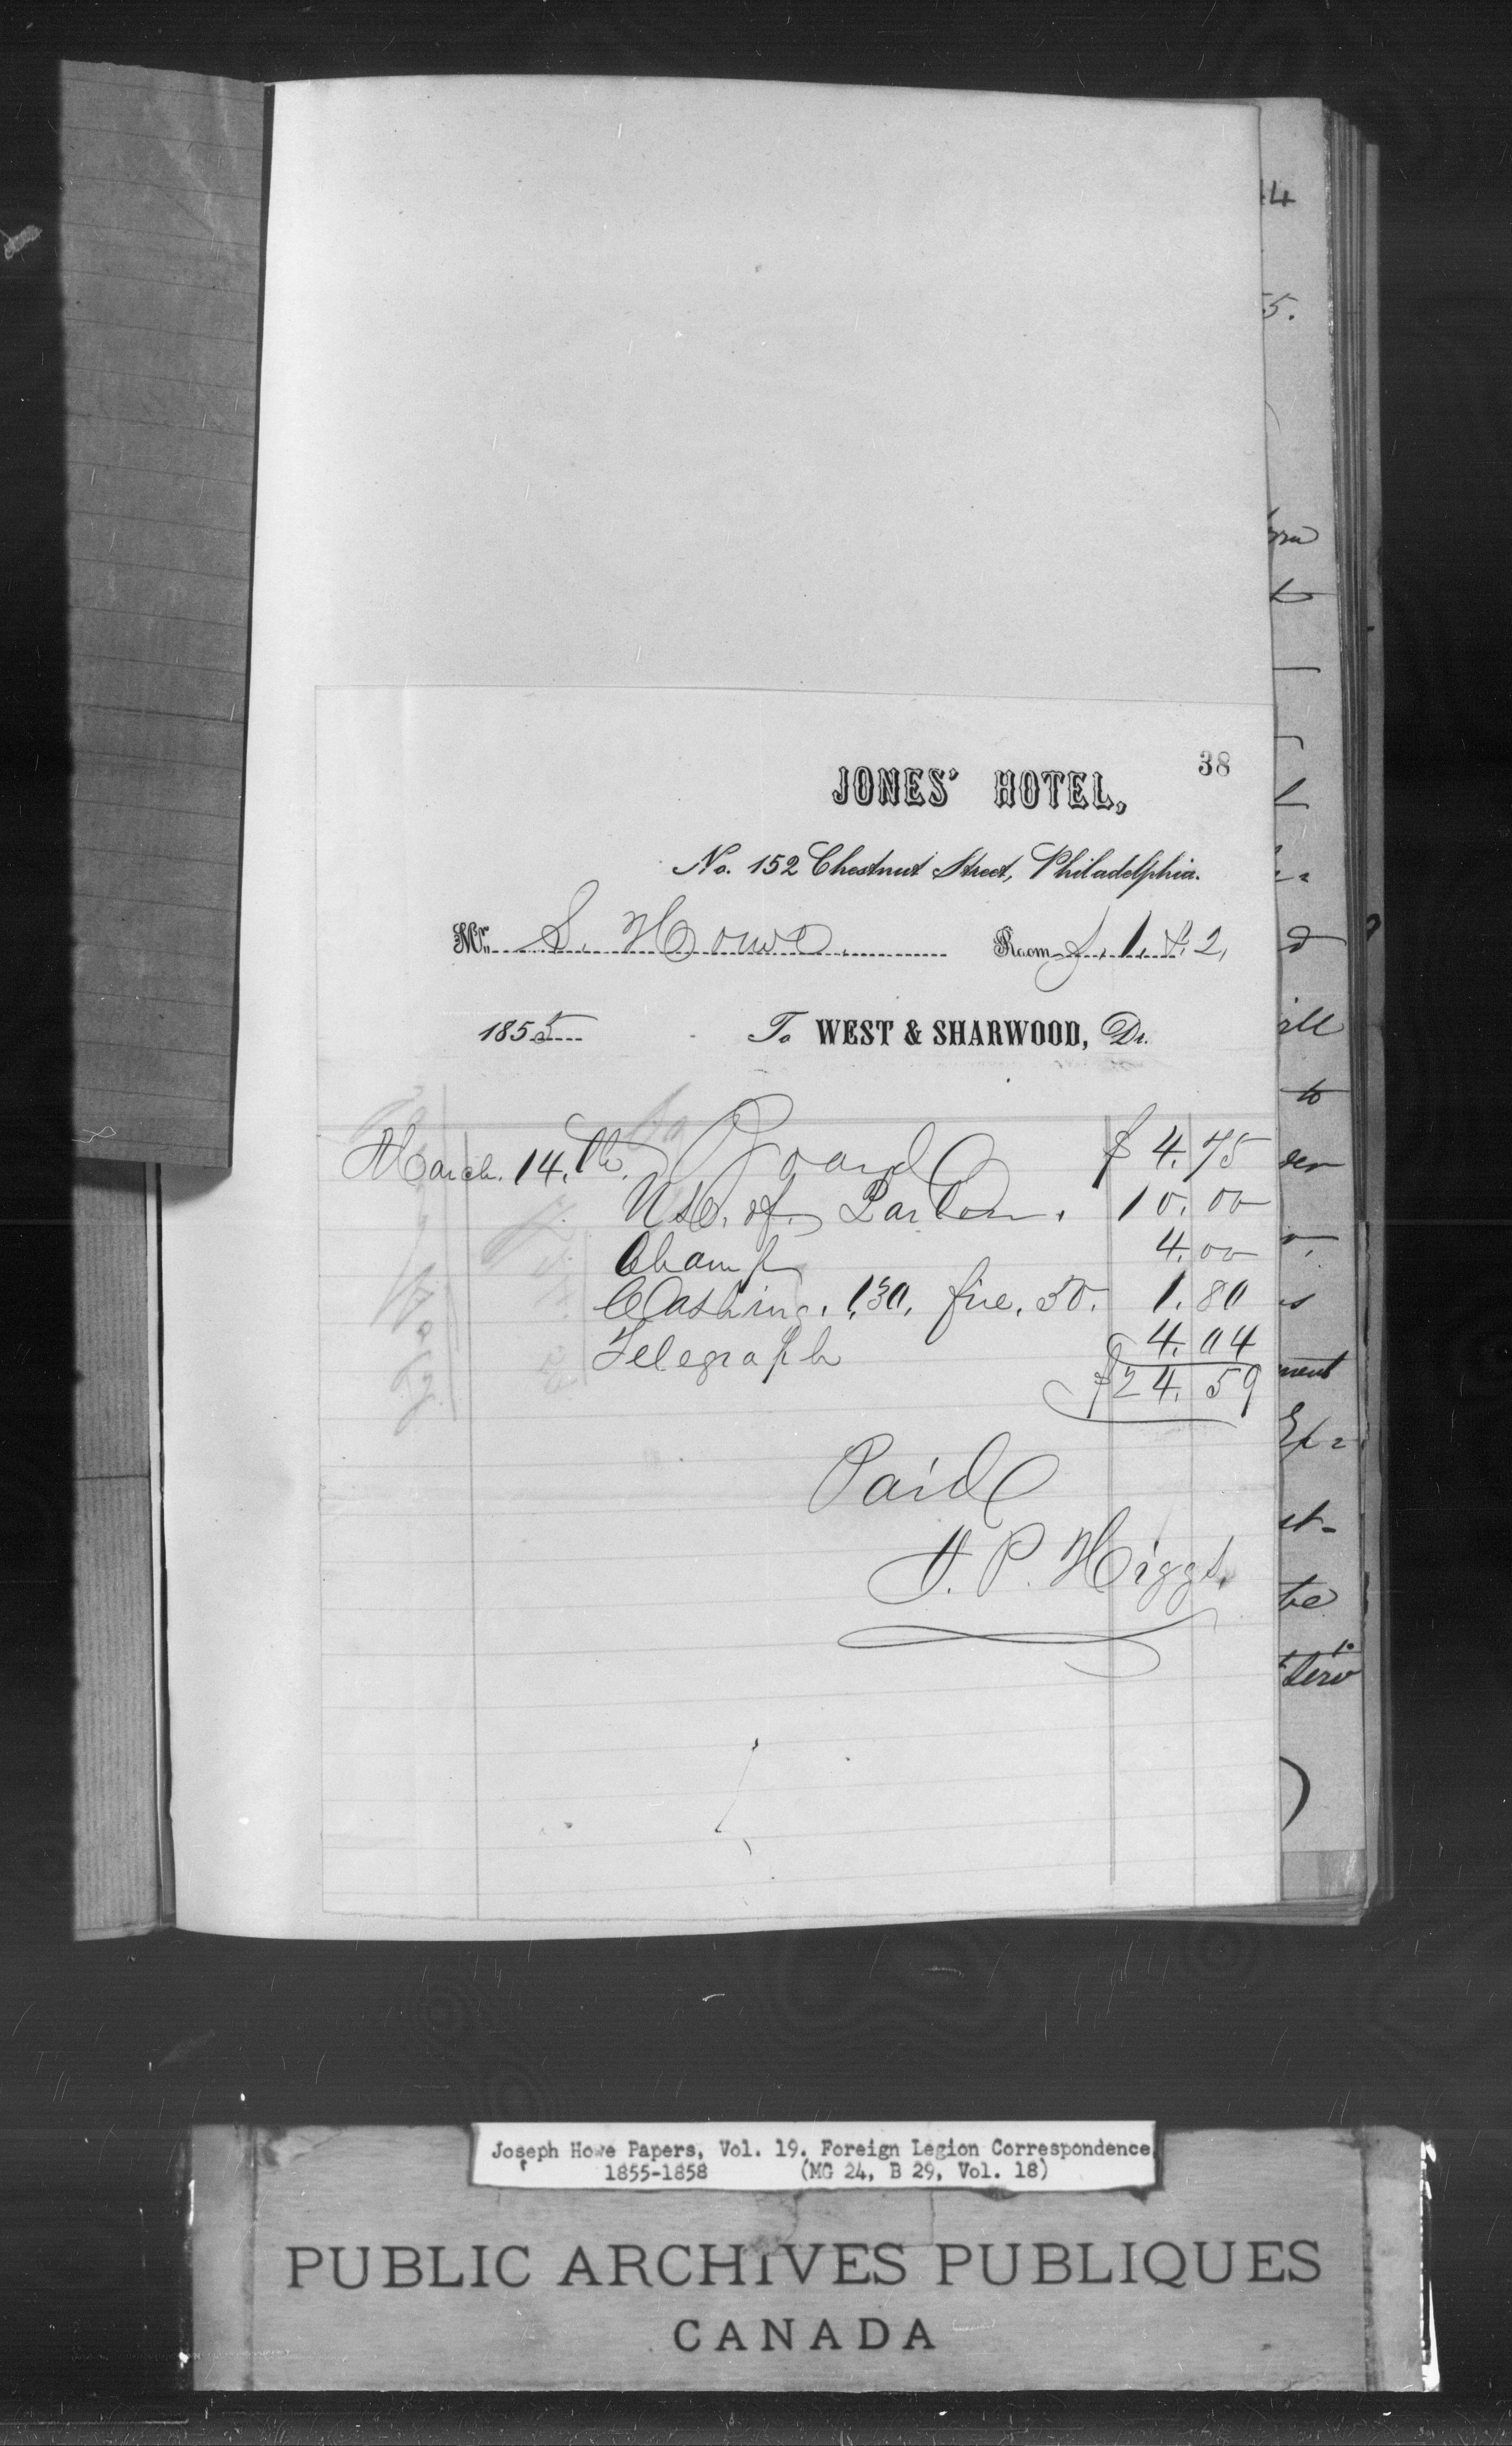 38
JONES' HOTEL,
No. 152 Chestnut Street, Philadelphia.
Mr. S. Howe. Room 1. & 2,
1855 To WEST & SHARWOOD, Dr.
March. 14.th. Board $ 4.75
Use. of. Parlour. 10.00
Champ 4.00
Washing. 1.30. fire. 50. 1.80
Telegraph 4.04
$24.59
Paid
J. P. Higgs.
44
55.
t
d
ill
to
der
is
ment
st-
be
Serv
Joseph Howe Papers, Vol. 19. Foreign Legion Correspondence
1855-1858 (MG 24, B 29, Vol. 18)
PUBLIC ARCHIVES PUBLIQUES
CANADA